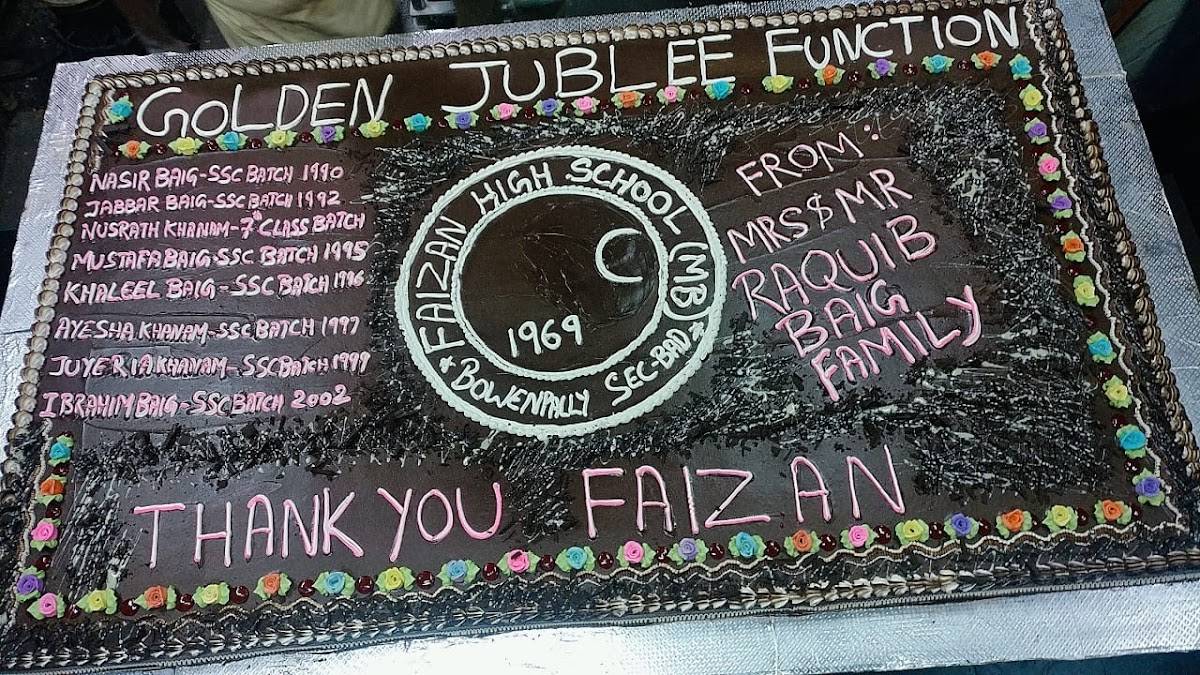 GOLDEN JUBLEE FUNCTION
NASIR BAIG-SSC BATCH 1990
JABBAR BAIG-SSC BATCH 1992
NUSRATH KHANAM-7th CLASS BATCH
MUSTAFA BAIG-SSC BATCH 1995
KHALEEL BAIG-SSC BATCH 1996
AYESHA KHANAM-SSC BATCH 1997
JUYERIA KHANAM-SSC BATCH 1999
IBRAHIM BAIG-SSC BATCH 2002
FAIZAN HIGH SCHOOL (MB)
1969
* BOWENPALLY SEC-BAD *
FROM:
MRS $ MR
RAQUIB
BAIG
FAMILY
THANK YOU FAIZAN